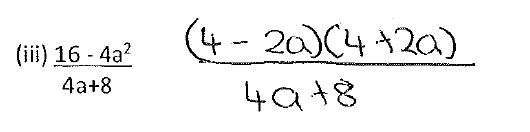 (iii) 16 - 4a²
4a+8
(4 - 2a)(4 + 2a)
4a + 8